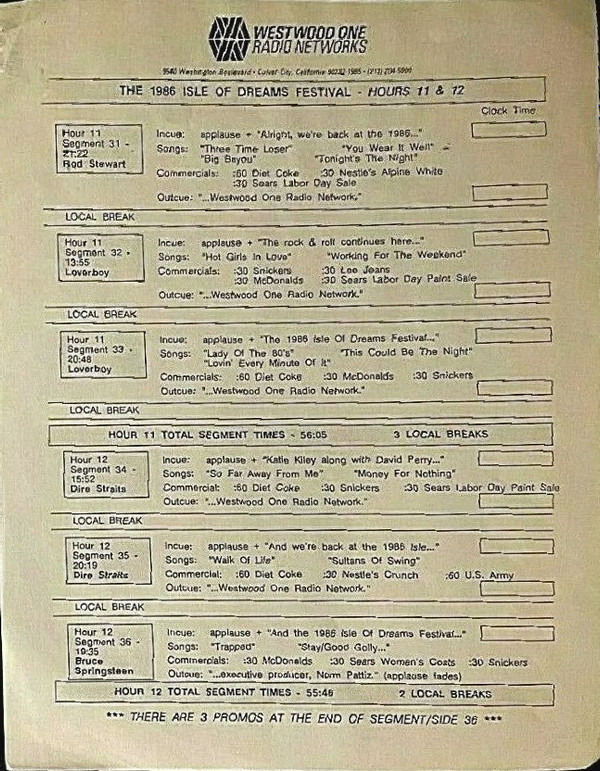 WESTWOOD ONE
RADIO NETWORKS
9540 Washington Boulevard • Culver City, California 90232-1985 • (213) 204-5000
THE 1986 ISLE OF DREAMS FESTIVAL - HOURS 11 & 12
Clock Time
Hour 11
Segment 31 -
21:22
Rod Stewart
Incue: applause + "Alright, we're back at the 1986..."
Songs: "Three Time Loser" "You Wear It Well"
"Big Bayou" "Tonight's The Night"
Commercials: :60 Diet Coke :30 Nestle's Alpine White
:30 Sears Labor Day Sale
Outcue: "...Westwood One Radio Network."
LOCAL BREAK
Hour 11
Segment 32 -
13:55
Loverboy
Incue: applause + "The rock & roll continues here..."
Songs: "Hot Girls In Love" "Working For The Weekend"
Commercials: :30 Snickers :30 Lee Jeans
:30 McDonalds :30 Sears Labor Day Paint Sale
Outcue: "...Westwood One Radio Network."
LOCAL BREAK
Hour 11
Segment 33 -
20:48
Loverboy
Incue: applause + "The 1986 Isle Of Dreams Festival..."
Songs: "Lady Of The 80's" "This Could Be The Night"
"Lovin' Every Minute Of It"
Commercials: :60 Diet Coke :30 McDonalds :30 Snickers
Outcue: "...Westwood One Radio Network."
LOCAL BREAK
HOUR 11 TOTAL SEGMENT TIMES - 56:05 3 LOCAL BREAKS
Hour 12
Segment 34 -
15:52
Dire Straits
Incue: applause + "Katie Kiley along with David Perry..."
Songs: "So Far Away From Me" "Money For Nothing"
Commercial: :60 Diet Coke :30 Snickers :30 Sears Labor Day Paint Sale
Outcue: "...Westwood One Radio Network."
LOCAL BREAK
Hour 12
Segment 35 -
20:19
Dire Straits
Incue: applause + "And we're back at the 1986 Isle..."
Songs: "Walk Of Life" "Sultans Of Swing"
Commercial: :60 Diet Coke :30 Nestle's Crunch :60 U.S. Army
Outcue: "...Westwood One Radio Network."
LOCAL BREAK
Hour 12
Segment 36 -
19:35
Bruce
Springsteen
Incue: applause + "And the 1986 Isle Of Dreams Festival..."
Songs: "Trapped" "Stay/Good Golly..."
Commercials: :30 McDonalds :30 Sears Women's Coats :30 Snickers
Outcue: "...executive producer, Norm Pattiz." (applause fades)
HOUR 12 TOTAL SEGMENT TIMES - 55:46 2 LOCAL BREAKS
*** THERE ARE 3 PROMOS AT THE END OF SEGMENT/SIDE 36 ***